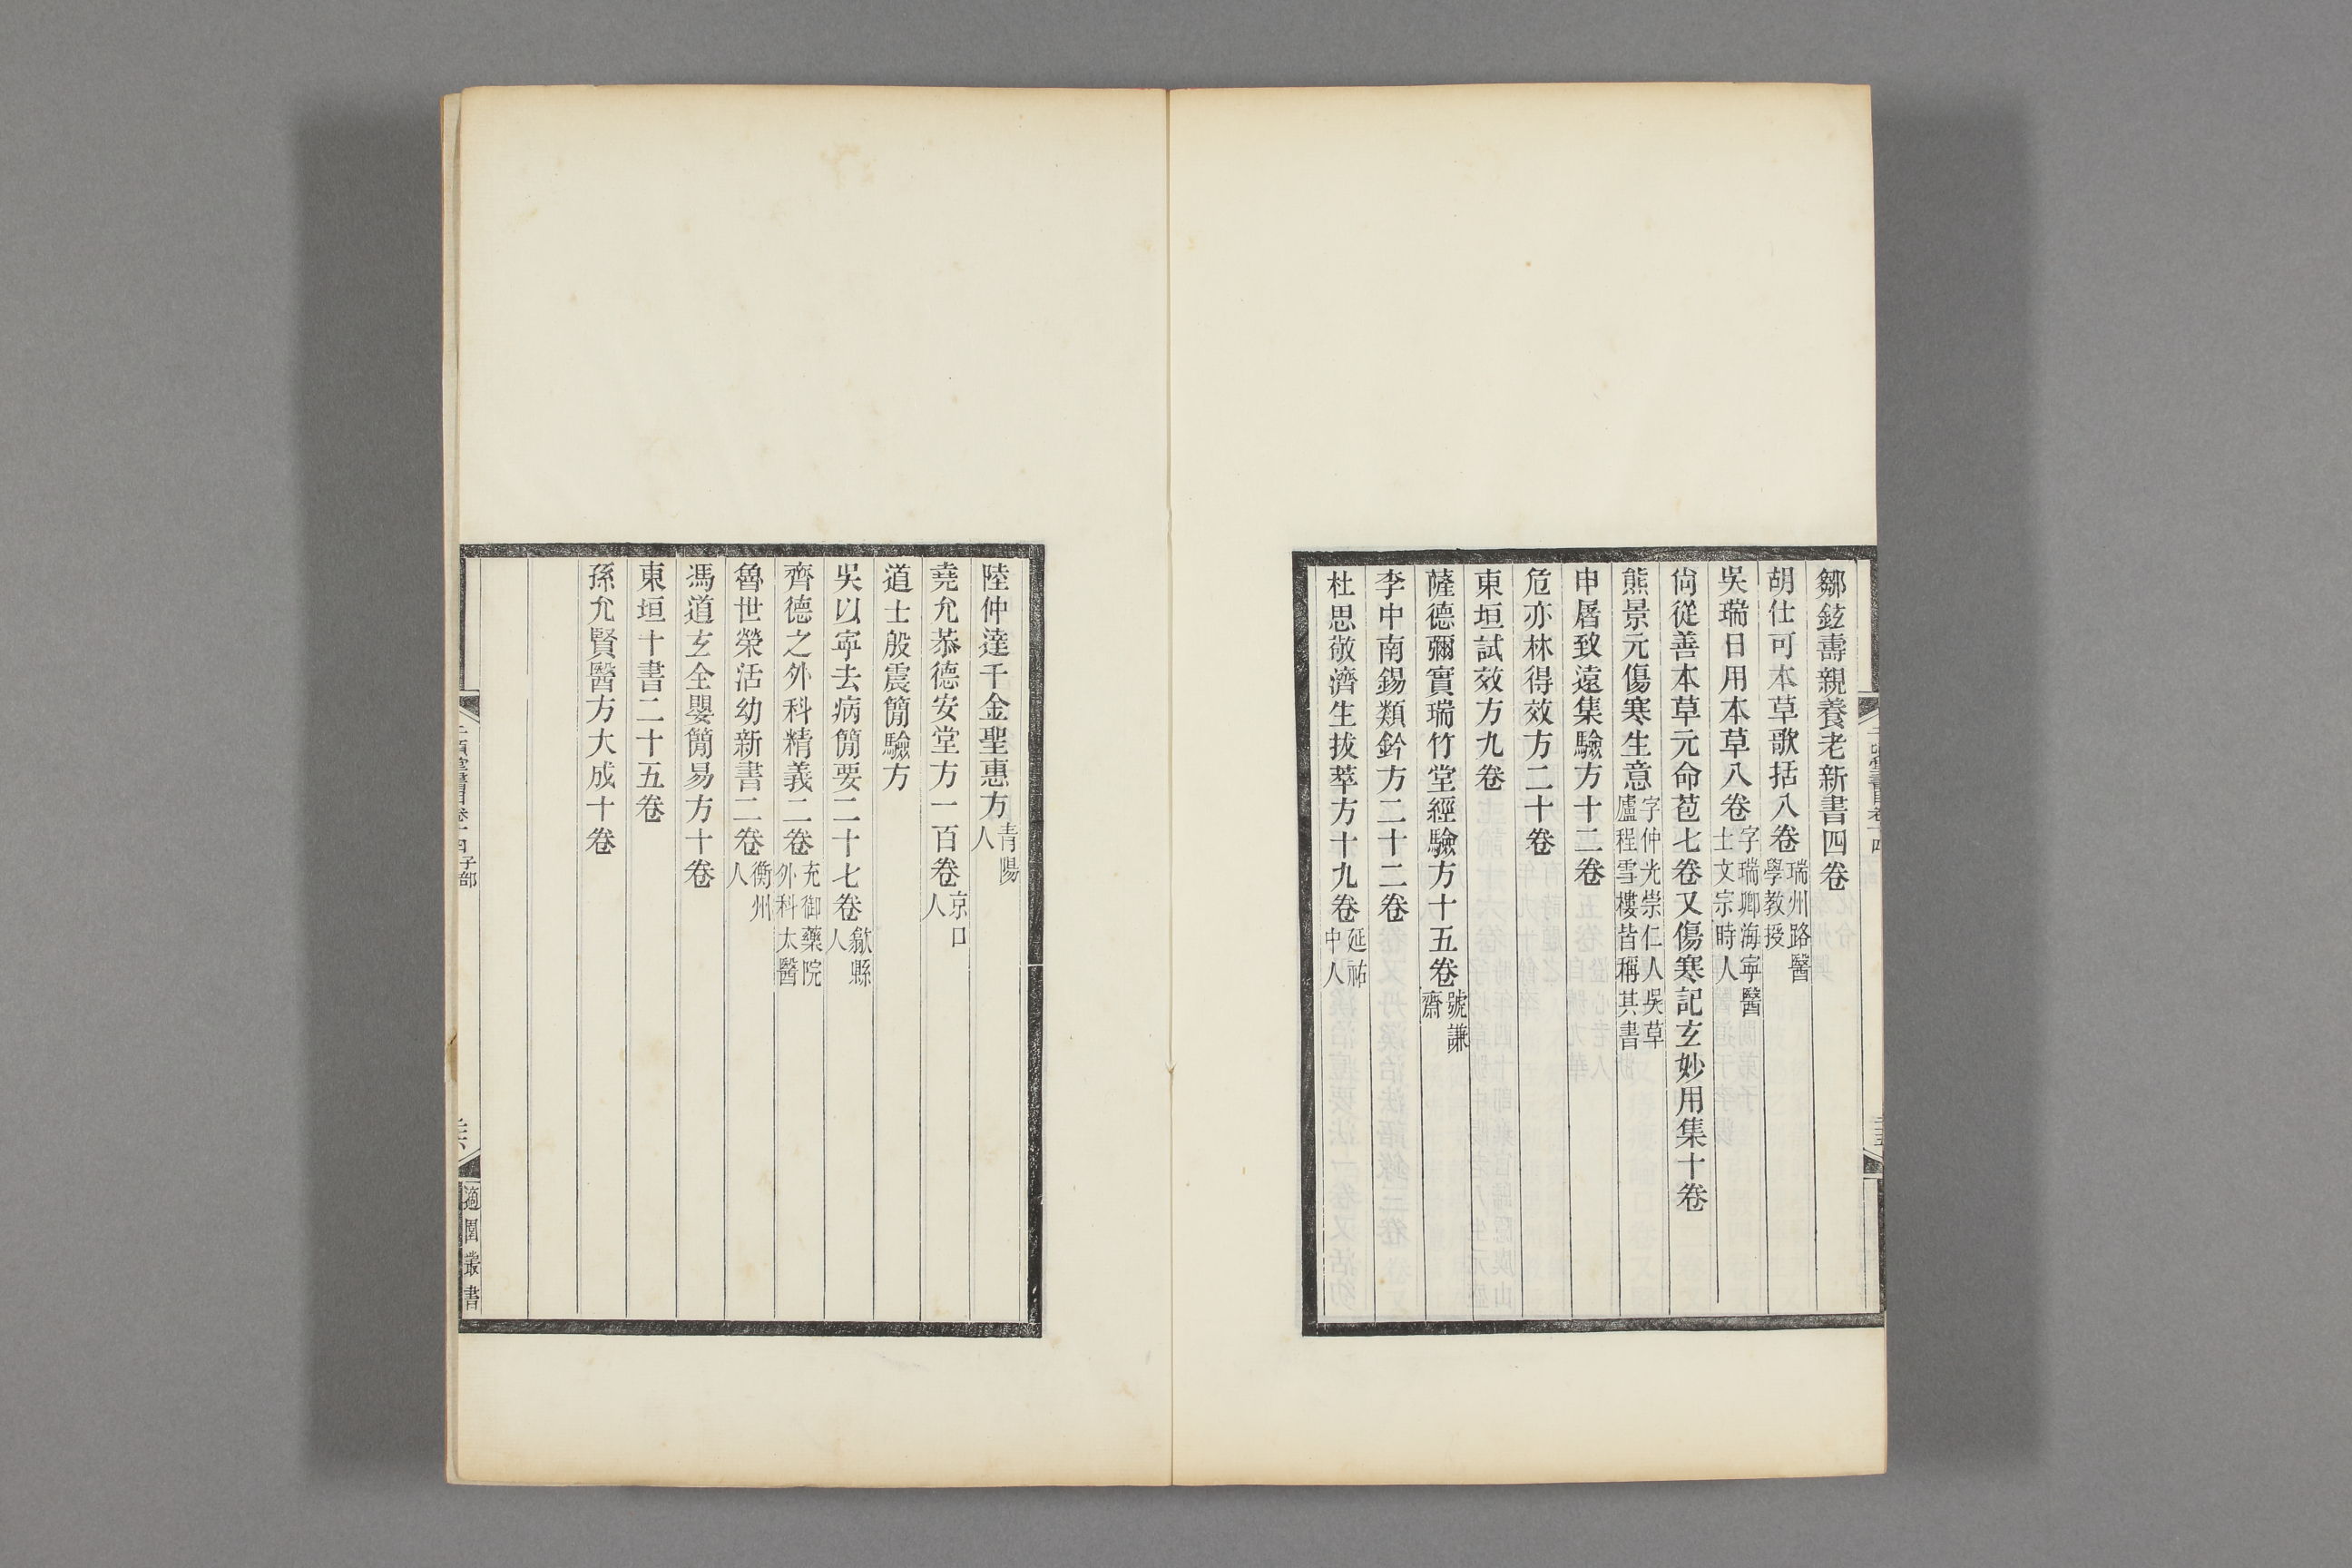 鄒鉉壽親養老新書四卷
胡仕可本草歌括八卷瑞州路醫學教授
吳瑞日用本草八卷字瑞卿海寧醫士文宗時人
尙從善本草元命苞七卷又傷寒記玄妙用集十卷
熊景元傷寒生意字仲光崇仁人吳草廬程雪樓皆稱其書
申屠致遠集驗方十二卷
危亦林得效方二十卷
東垣試效方九卷
薩德彌實瑞竹堂經驗方十五卷號謙齋
李中南錫類鈐方二十二卷
杜思敬濟生拔萃方十九卷延祐中人
陸仲達千金聖惠方青陽人
堯允恭德安堂方一百卷京口人
道士殷震簡驗方
吳以寧去病簡要二十七卷歙縣人
齊德之外科精義二卷充御藥院外科太醫
魯世榮活幼新書二卷衡州人
馮道玄全嬰簡易方十卷
東垣十書二十五卷
孫允賢醫方大成十卷
千頃堂書目卷十四子部
適園叢書